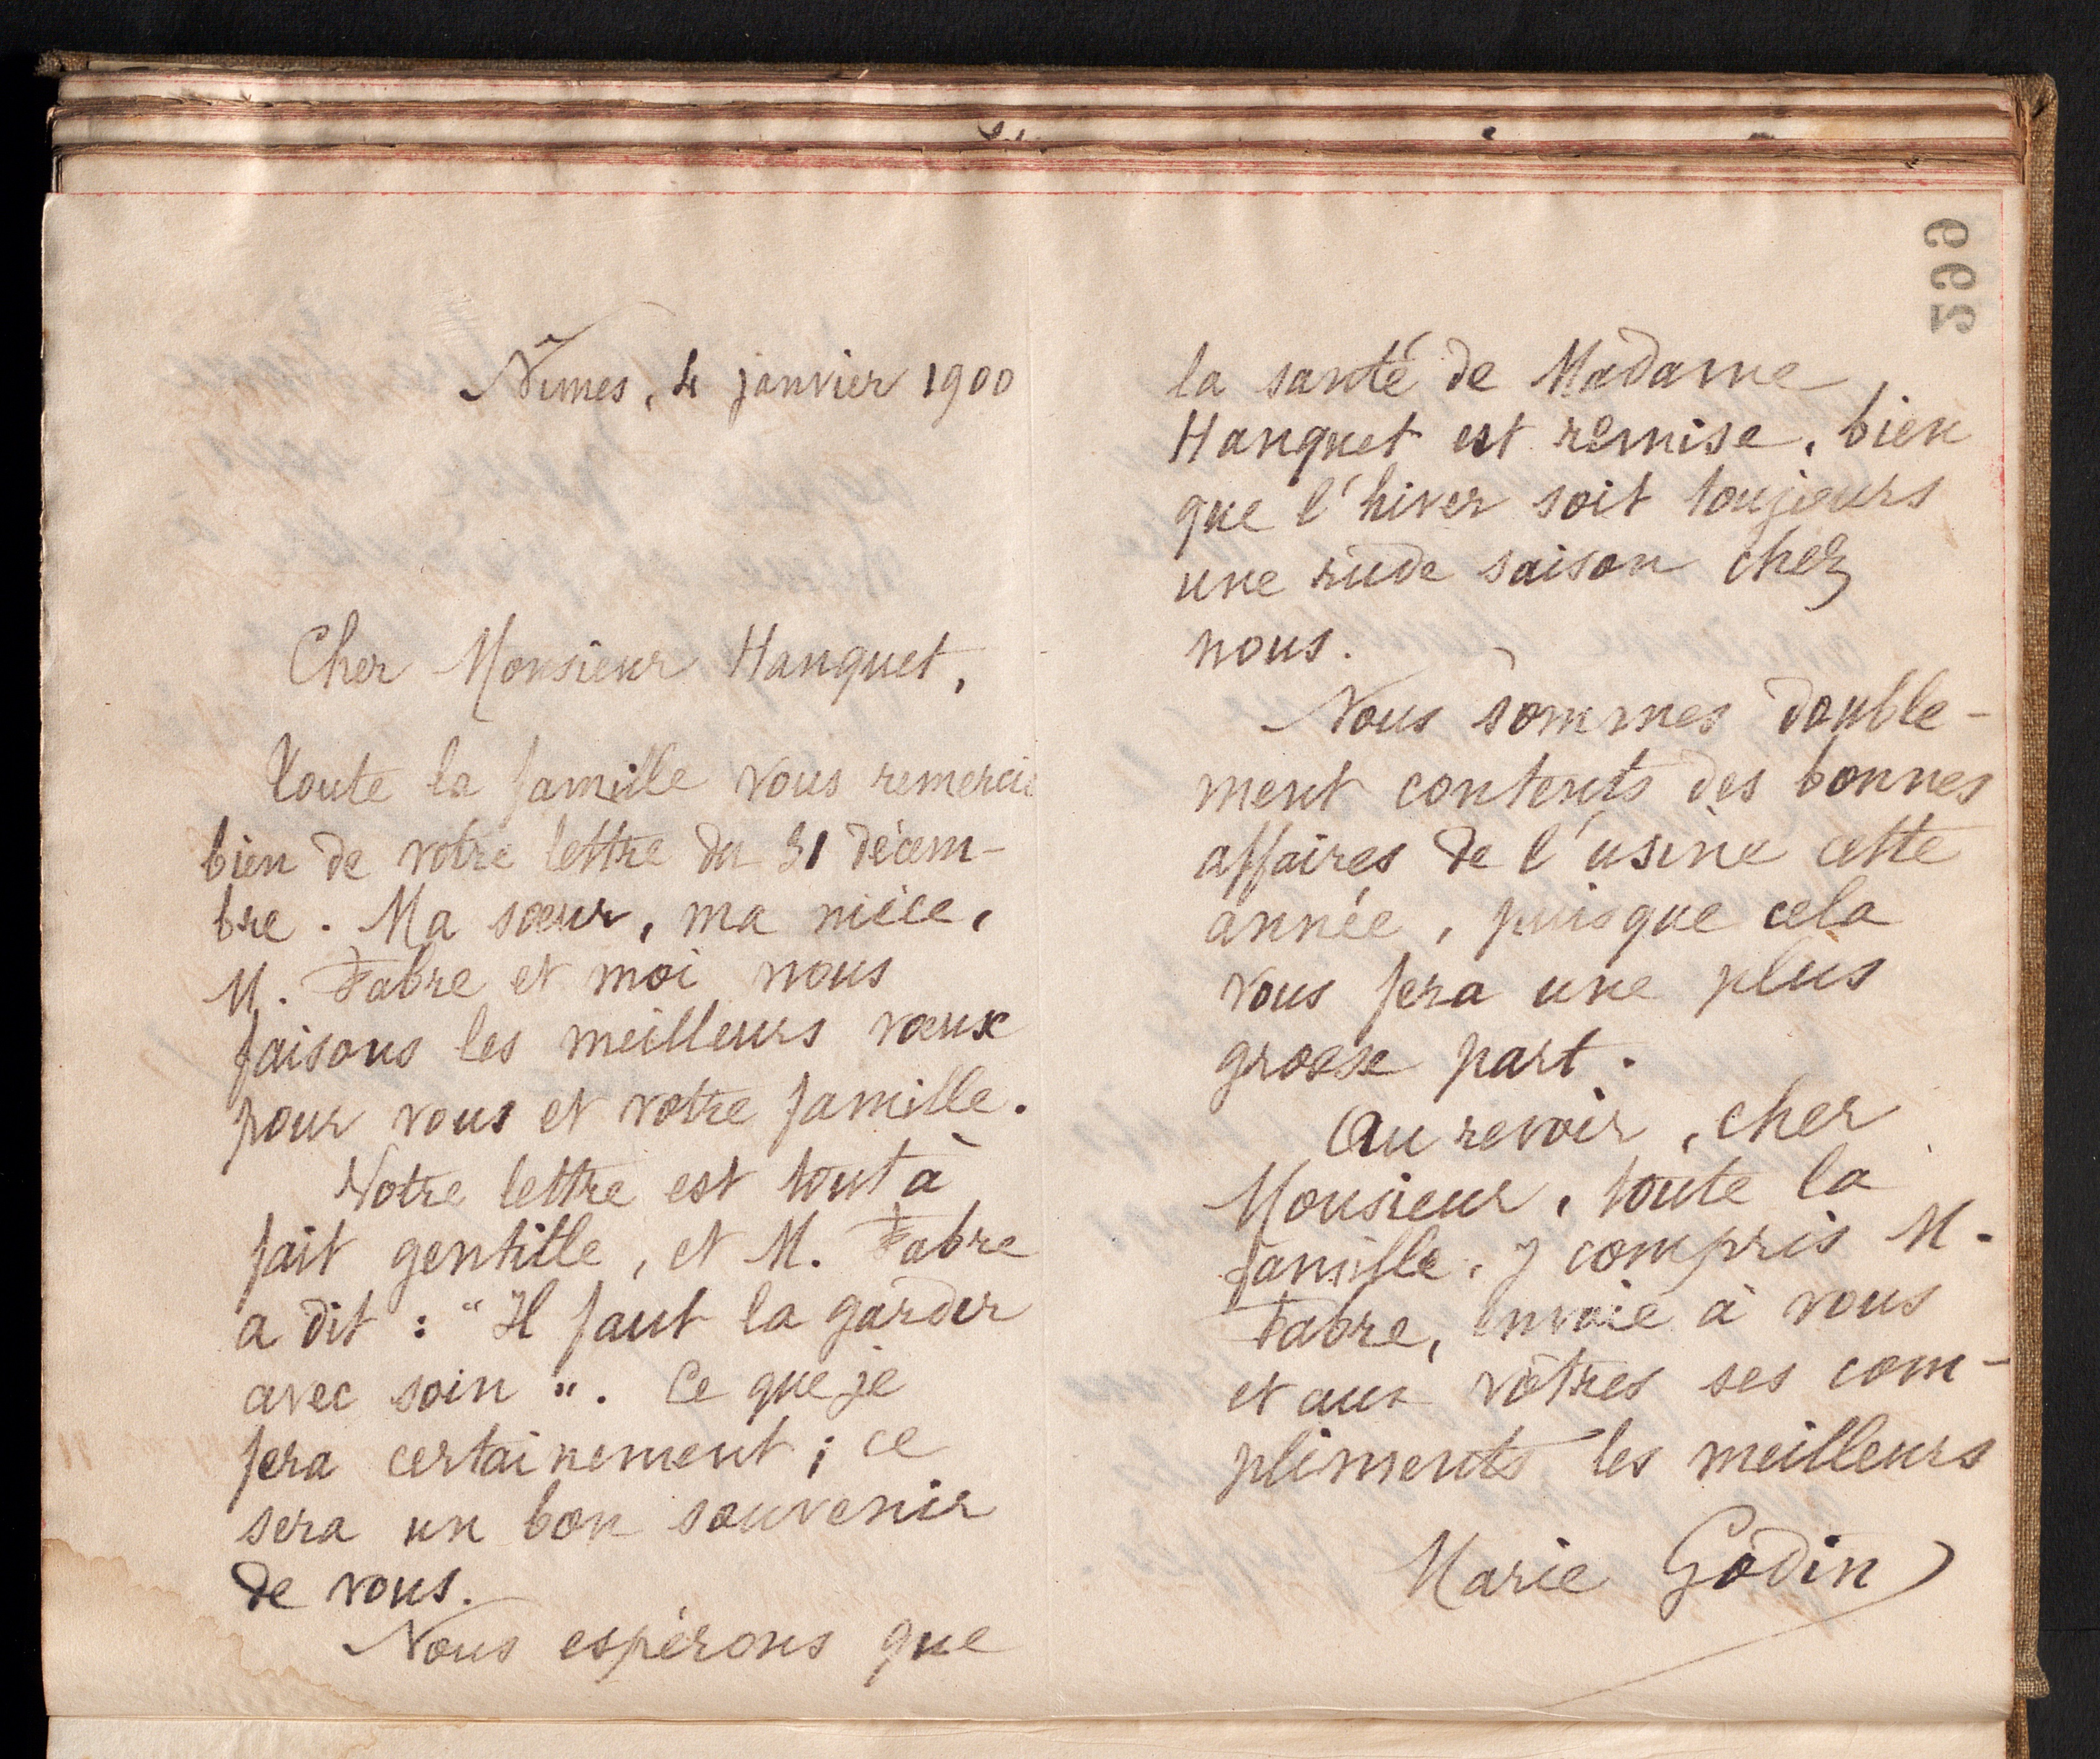 Nîmes, 4 janvier 1900
Cher Monsieur Hanquet,
Toute la famille vous remercie
bien de votre lettre du 31 décem-
bre. Ma sœur, ma nièce,
M. Fabre et moi nous
faisons les meilleurs vœux
pour vous et votre famille.
Votre lettre est tout à
fait gentille, et M. Fabre
a dit : "Il faut la garder
avec soin". Ce que je
fera certainement ; ce
sera un bon souvenir
de vous.
Nous espérons que
299
la santé de Madame
Hanquet est remise, bien
que l'hiver soit toujours
une rude saison chez
nous.
Nous sommes double-
ment contents des bonnes
affaires de l'usine cette
année, puisque cela
vous fera une plus
grosse part.
Au revoir, cher
Monsieur, toute la
famille, y compris M.
Fabre, envoie à vous
et aux vôtres ses com-
pliments les meilleurs
Marie Godin